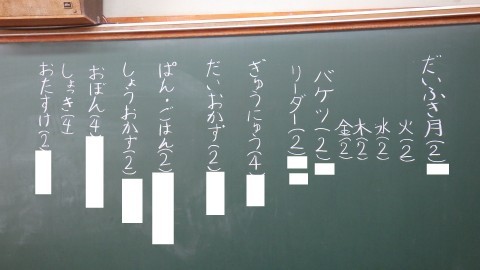 だいふき月(2)
火(2)
水(2)
木(2)
金(2)
バケツ(2)
リーダー(2)
ぎゅうにゅう(4)
だいおかず(2)
ぱん・ごはん(2)
しょうおかず(2)
おぼん(4)
しょっき(4)
おたすけ(2)